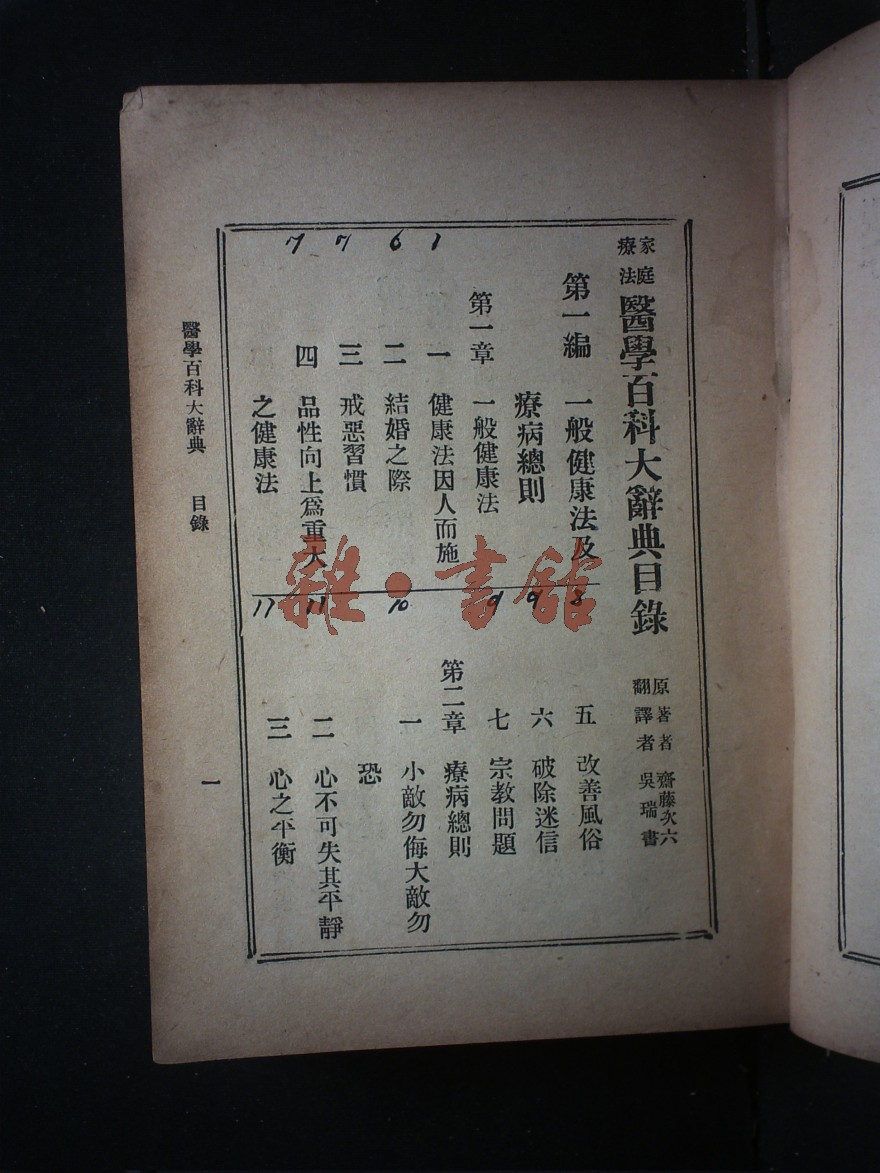 家庭
療法
醫學百科大辭典目錄
原著者 齋藤次六
翻譯者 吳瑞書
第一編 一般健康法及
療病總則
第一章 一般健康法
一 健康法因人而施
1
二 結婚之際
6
三 戒惡習慣
7
四 品性向上爲重大
之健康法
7
五 改善風俗
8
六 破除迷信
9
七 宗教問題
9
第二章 療病總則
一 小敵勿侮大敵勿
恐
10
二 心不可失其平靜
11
三 心之平衡
11
醫學百科大辭典 目錄
一
雜·書館